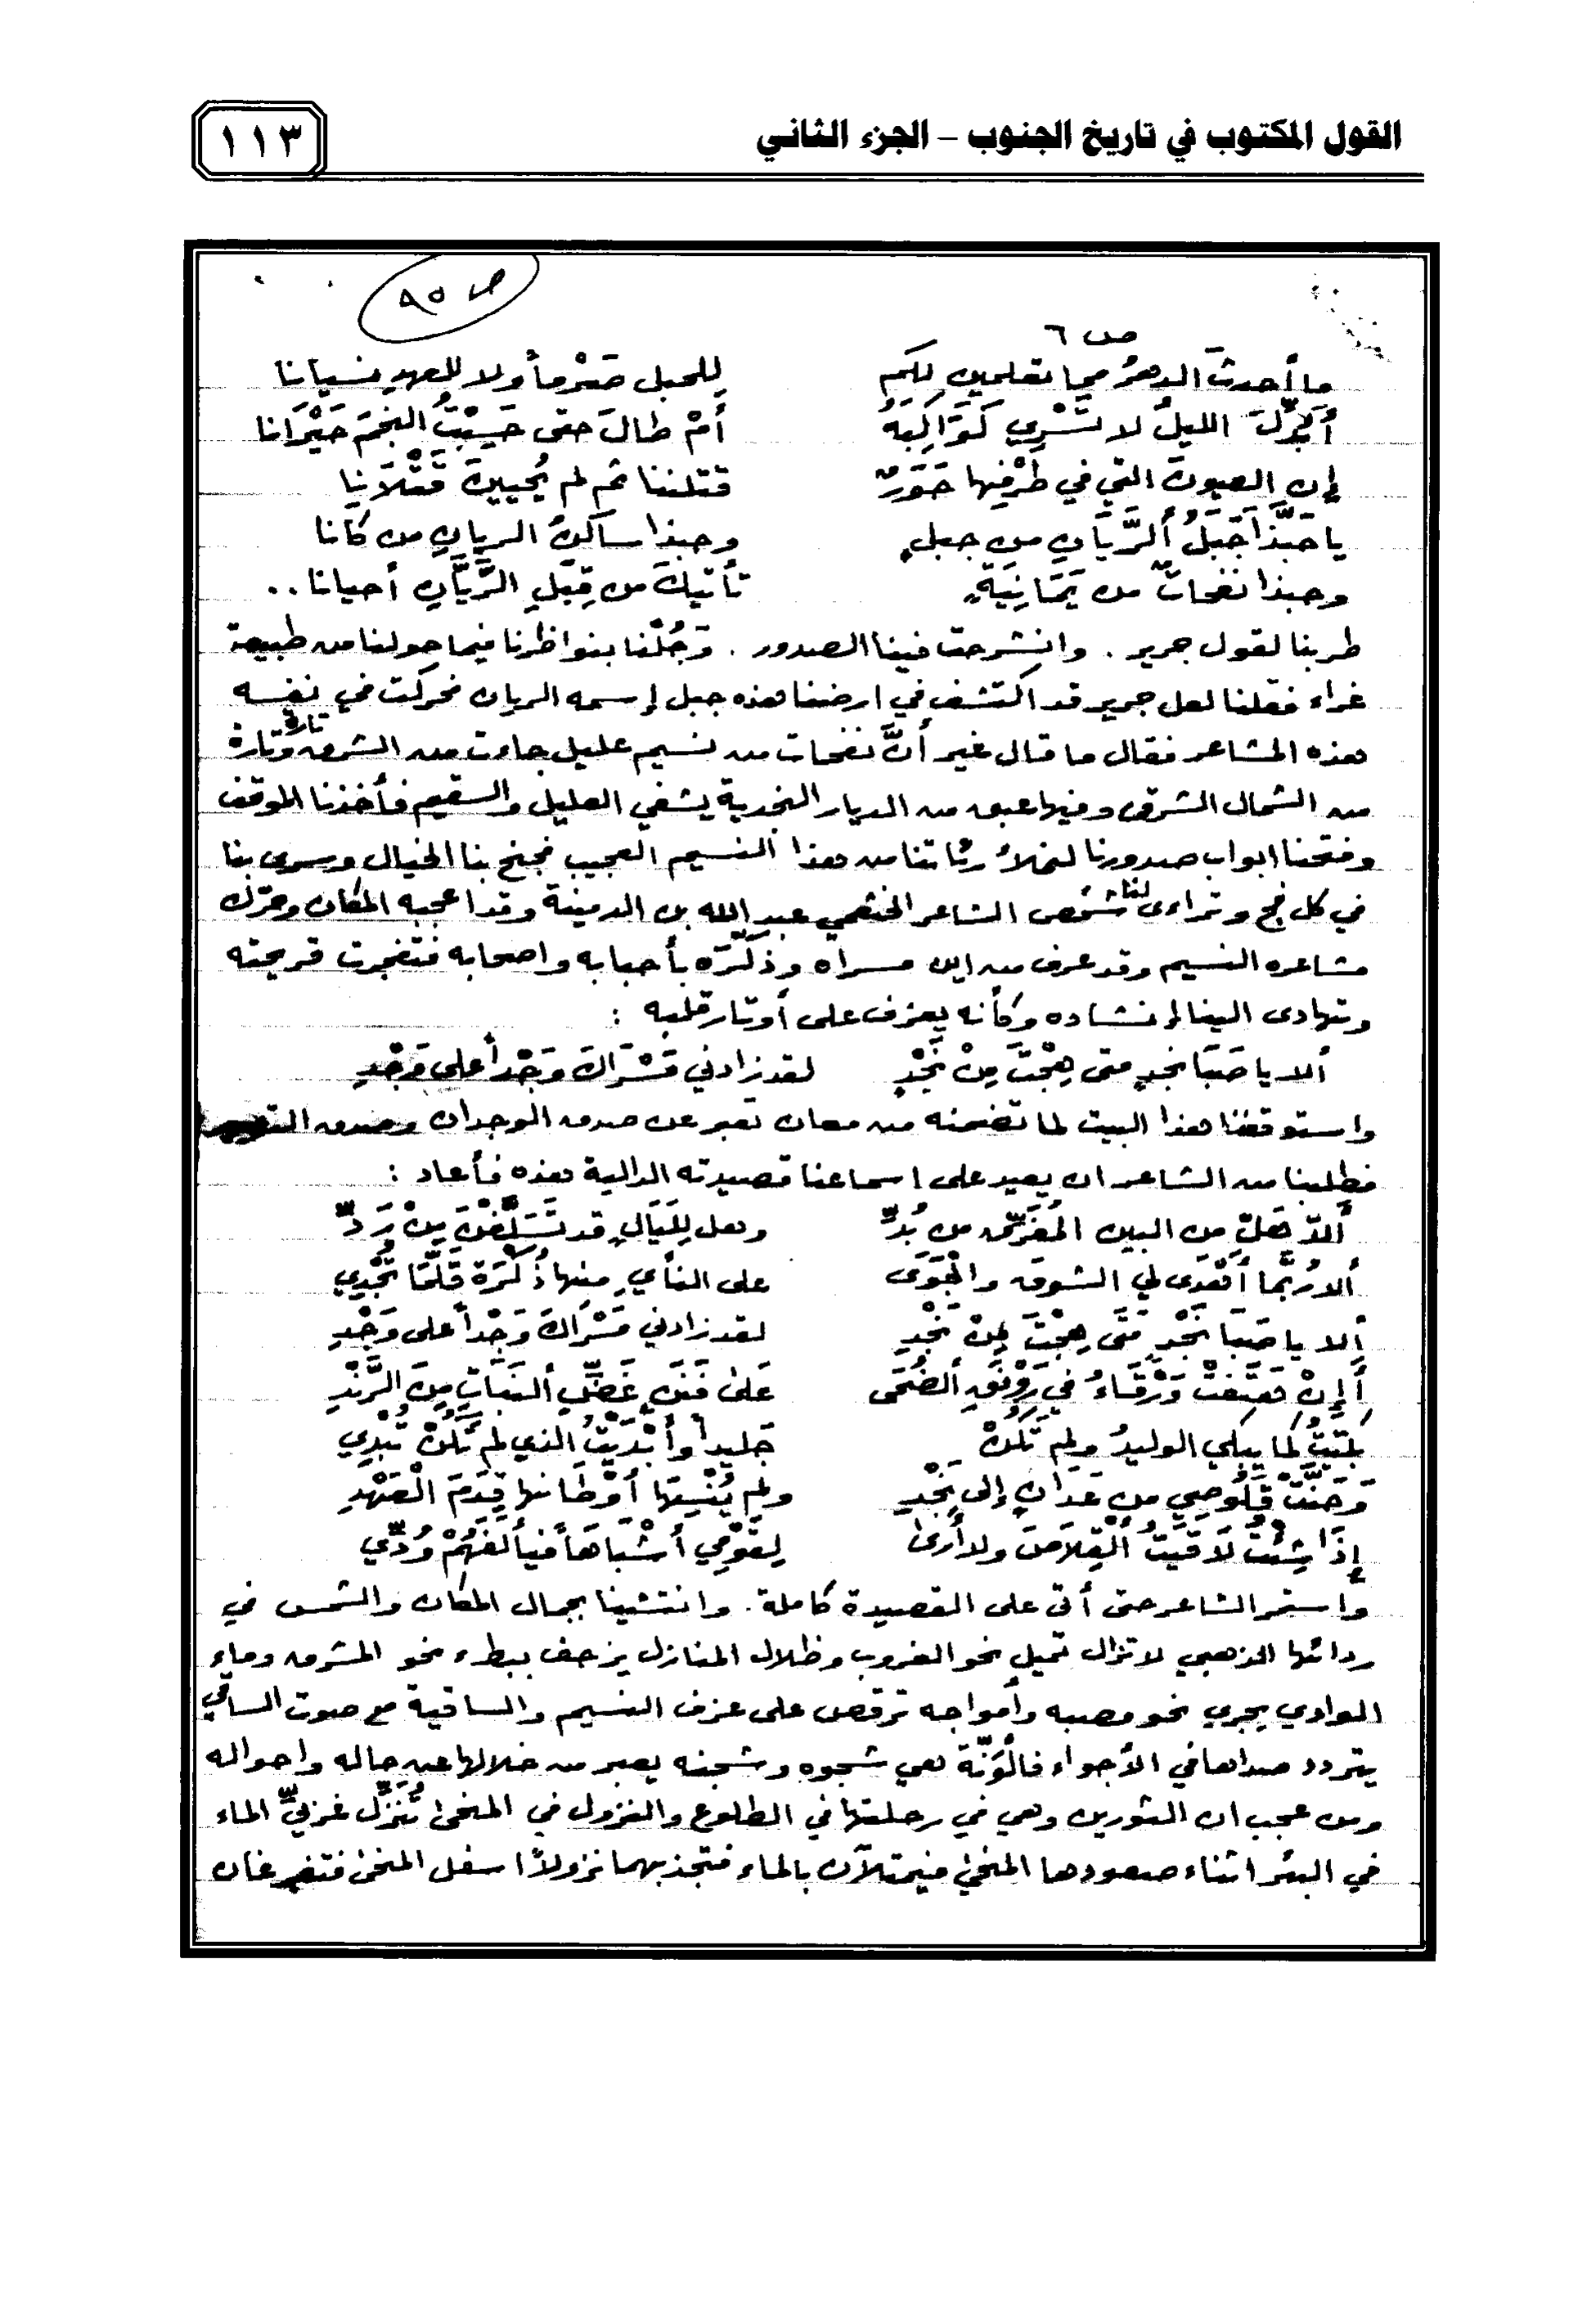 القول المكتوب في تاريخ الجنوب – الجزء الثاني
١١٣
ص ٩٥
ص ٦
ما أحدث الدهرُ مما تعلمين لكم    للحبل صَرْماً ولا للعهدِ نسيانا
أَبُدِّلَ الليلُ لا تَسْرِي كَوَاكِبُهُ    أمْ طالَ حتى حَسِبْتُ النجمَ حَيْرَانا
إن العيونَ التي في طَرْفِها حَوَرٌ    قتلننا ثم لم يُحْيينَ قَتْلَانا
يا حَبَّذا جَبَلُ الرَّيَانِ من جبلٍ    وحبذا ساكنُ الريانِ من كانا
وحبذا نفحاتٌ من يَمَانِيَةٍ    تأتيكَ من قِبَلِ الرَّيَّانِ أحيانا..
طربنا لقول جرير. وانشرحت فينا الصدور. وَجُلْنا بنواظرنا فيما حولنا من طبيعة
غراء فقلنا لعل جرير قد اكتشف في ارضنا هذه جبل إسمه الريان فحركت في نفسه
هذه المشاعر فقال ما قال غير أنَّ نفحات من نسيم عليل جاءت من الشرق تارة وتارة
من الشمال الشرقي وفيها عبق من الديار النجدية يشفي العليل والسقيم فأخذنا الموقف
وفتحنا ابواب صدورنا لنملأ رئاتنا من هذا النسيم العجيب فجنح بنا الخيال وسرى بنا
في كل فج وتراءى لنا شخص الشاعر الخثعمي عبد الله بن الدمينة وقد اعجبه المكان وحرّك
مشاعره النسيم وقد عرف من اين مسراه وذكّرَه بأحبابه واصحابه فتفجرت قريحته
وتهادى الينا إنشاده وكأنه يعزف على أوتار قلبه :
ألا يا صَبَا نجدٍ متى هِجْتَ مِنْ نَجْدٍ    لقد زادني مَسْرَاكَ وَجْداً على وَجْدِ
واستوقفنا هذا البيت لما تضمنه من معان تعبر عن صدق الوجدان وصدق التعبير
فطلبنا من الشاعر ان يعيد على اسماعنا قصيدته الدالية هذه فأعاد :
ألا هَلْ مِنَ البين المُفَرِّقِ من بُدِّ    وهل لِلَيَالٍ قد تَسَلَّفْنَ مِنْ رَدِّ
ألا رُبَّما أهْدَى لي الشوقَ والجَوَى    على النأيِ منها ذُكْرَة قَلَّمَا تُجْدِي
ألا يا صَبَا نَجْدٍ مَتَى هِجْتَ مِنْ نَجْدٍ    لقد زادني مَسْرَاكَ وَجْداً على وَجْدِ
أَإِنْ هَتَفَتْ وَرْقَاءُ في رَوْنَقِ الضُحَى    عَلى فَنَنٍ غَضِّ النَبَاتِ مِنَ الرَّنْدِ
بَكَيْتَ كما يبكي الوليدُ ولم تَكُنْ    جَليداً وأبْدَيْتَ الذي لم تَكُنْ تُبْدِي
وَحَنَّتْ قَلُوصِي من عَدَانٍ إلى نَجْدٍ    ولم يُنْسِهَا أوْطَانها قِدَمَ الْعَهْدِ
إذَا شِئْتَ لَاقَيْتُ القِلَاصَ ولا أرى    لِقَوْمِي أشْبَاهَاً فيألَفهُمْ وُدِّي
واستمر الشاعر حتى أتى على القصيدة كاملة. وانتشينا بجمال المكان والشمس في
ردائها الذهبي لا تزال تميل نحو الغروب وظلال المنازل يزحف ببطء نحو المشرق وماء
الوادي يجري نحو مصبه وأمواجه ترقص على عزف النسيم والساقية مع صوت الساقي
يتردد صداها في الأجواء فالْوَنّة هي شجوه وشجنه يعبر من خلالها عن حاله واحواله
ومن عجب ان الثورين وهي في رحلتها في الطلوع والنزول في المنحى تُنَزِّل غربيّ الماء
في البئر اثناء صعودها المنحى فيمتلآن بالماء فتجذبهما نزولاً اسفل المنحى فتفرغان